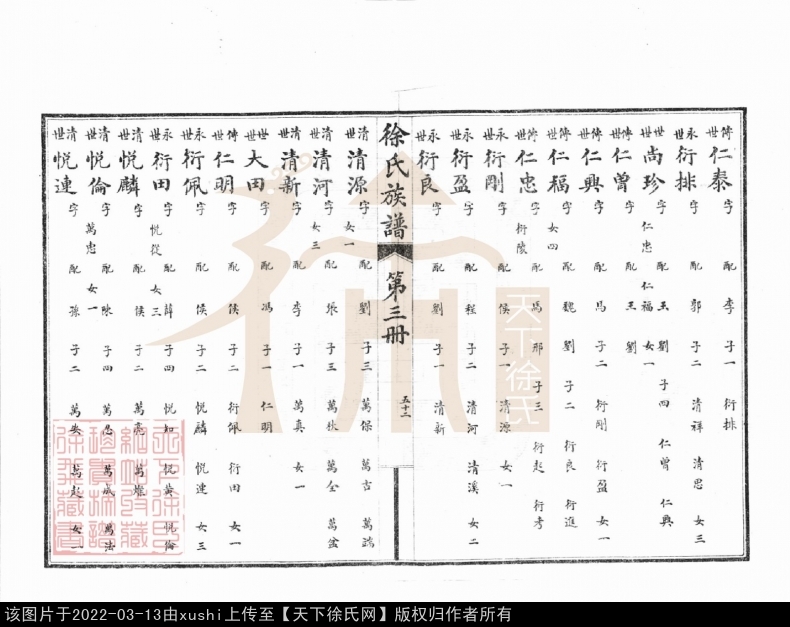 傳世 仁泰 字 配 李 子一 衍排
永世 衍排 字 配 郭 子二 清祥 清思 女三
世世 尚珍 字 仁忠 仁福 女一 配 王 劉 子四 仁曾 仁興
傳世 仁曾 字 配 王 劉
傳世 仁興 字 配 馬 子二 衍剛 衍盈 女一
傳世 仁福 字 女四 配 魏 劉 子二 衍良 衍進
傳世 仁忠 字 衍陵 配 馬 邢 子三 衍起 衍考
永世 衍剛 字 配 侯 子一 清源 女一
永世 衍盈 字 配 程 子二 清河 清溪 女二
永世 衍良 字 配 劉 子一 清新
徐氏族譜 第三冊 五十二
清世 清源 字 女一 配 劉 子三 萬保 萬古 萬瑞
清世 清河 字 女三 配 張 子三 萬秋 萬全 萬盆
清世 清新 字 配 李 子一 萬真 女一
世世 大田 字 配 馮 子一 仁明
傳世 仁明 字 配 侯 子二 衍佩 衍田 女一
永世 衍佩 字 配 侯 子二 悅麟 悅連 女三
永世 衍田 字 悅從 女三 配 薛 子四 悅知 悅黄 悅倫
清世 悅麟 字 配 侯 子二 萬亮
清世 悅倫 字 萬忠 女一 配 陳 子四 萬成 萬法
清世 悅連 字 配 孫 子二 萬起 女一
天下徐氏
该图片于2022-03-13由xushi上传至【天下徐氏网】版权归作者所有